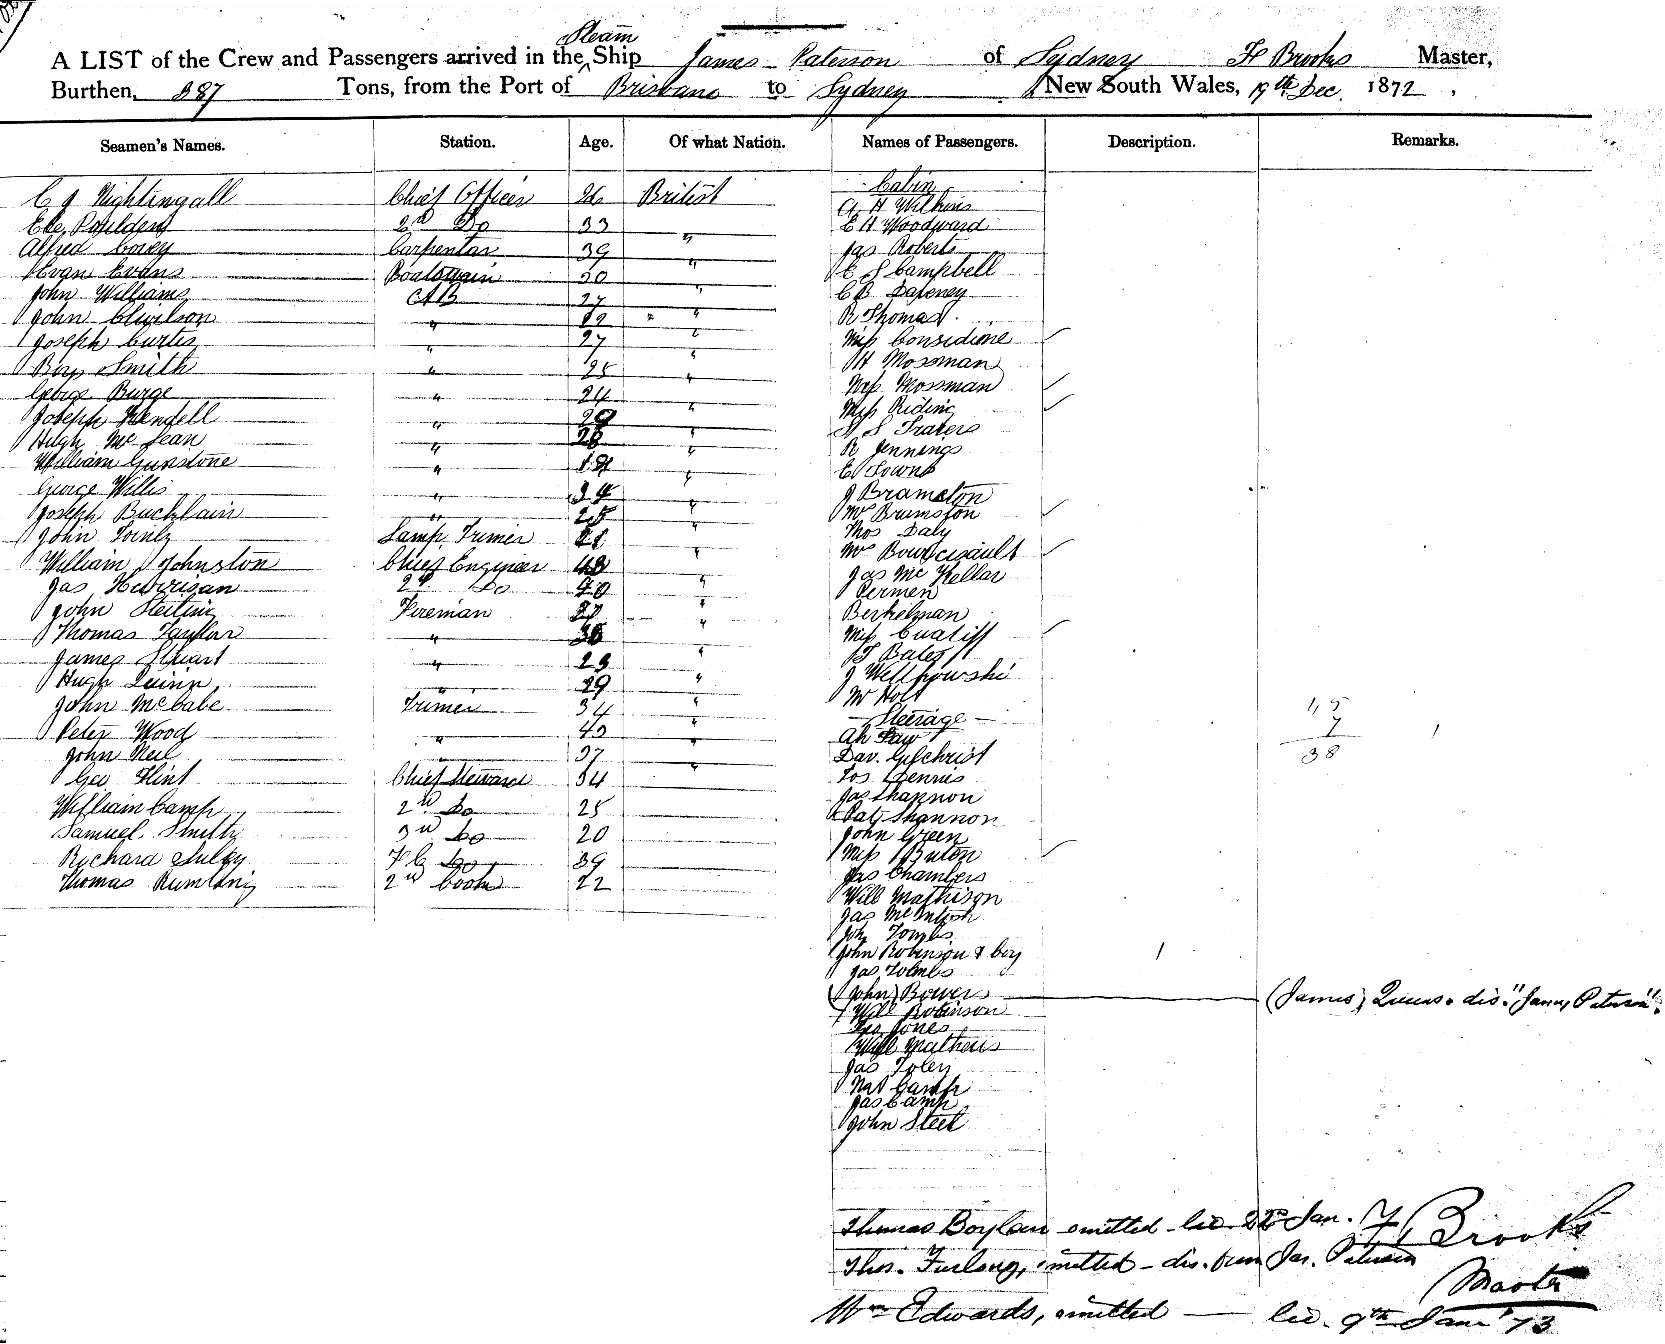 A LIST of the Crew and Passengers arrived in the Steam Ship James Paterson of Sydney F Brooks Master,
Burthen, 387 Tons, from the Port of Brisbane to Sydney New South Wales, 19th Dec. 1872,
Seamen's Names. Station. Age. Of what Nation. Names of Passengers. Description. Remarks.
C J Nightingall Chief Officer British
2nd Do 33
Alfred Carpenter 39 "
Evan Evans Boatswain 30 "
John Williams AB 27 "
John " "
Joseph Curtis " 27 "
Smith " 25 "
George Burge " 24 "
Joseph Kendell " "
Hugh Mc Lean " "
William Gunstone " "
George Willis " 34 "
Joseph Bucklain " 25 "
John Lamp Trimer "
William Johnston Chief Engineer "
Jas Harrison 2nd Do 40 "
John Fireman "
Thomas Taylor " "
James Stuart " 23 "
Hugh Quinn " 29 "
John McCabe Trimer 34 "
Peter Wood " 43 "
John Neil 37 "
Geo Flint Chief Steward 34
William Camp 2nd Do 25
Samuel Smith 3rd Do 20
Richard F C Do 39
Thomas 2nd Cook 22
Cabin
A H Wilkins
E H Woodward
Jas Roberts
C S Campbell
C B
R Thomas
Miss Considine
H Mossman
Mrs Mossman
Miss Riding
S Travers
R Jennings
E Towns
J Bramston
Mrs Bramston
Thos Daly
Mrs Bourcicault
Jas Mc Kellar
Permen
Berkelman
Miss
T Bates
J
Mr Holt
Steerage
Ah
Dav. Gilchrist
Dennis
Jas Shannon
Pat Shannon
John Green
Miss
Jas Chambers
Will Mathison
Jas McIntosh
Tombs
John Robinson & boy 1
Jas Tombs
(John) Bowers (James) Queens. dis. "James Paterson".
Will Robinson
Jones
Will Mathews
Jas Foley
Nat Camp
Jas Camp
John Steel
15
7 1
38
Thomas Boylan omitted lic. 22nd Jan. F, Brooks
Thos. Furlong, omitted - dis. from Jas. Paterson
Master
Wm Edwards, omitted — lic. 9th Jan' 73